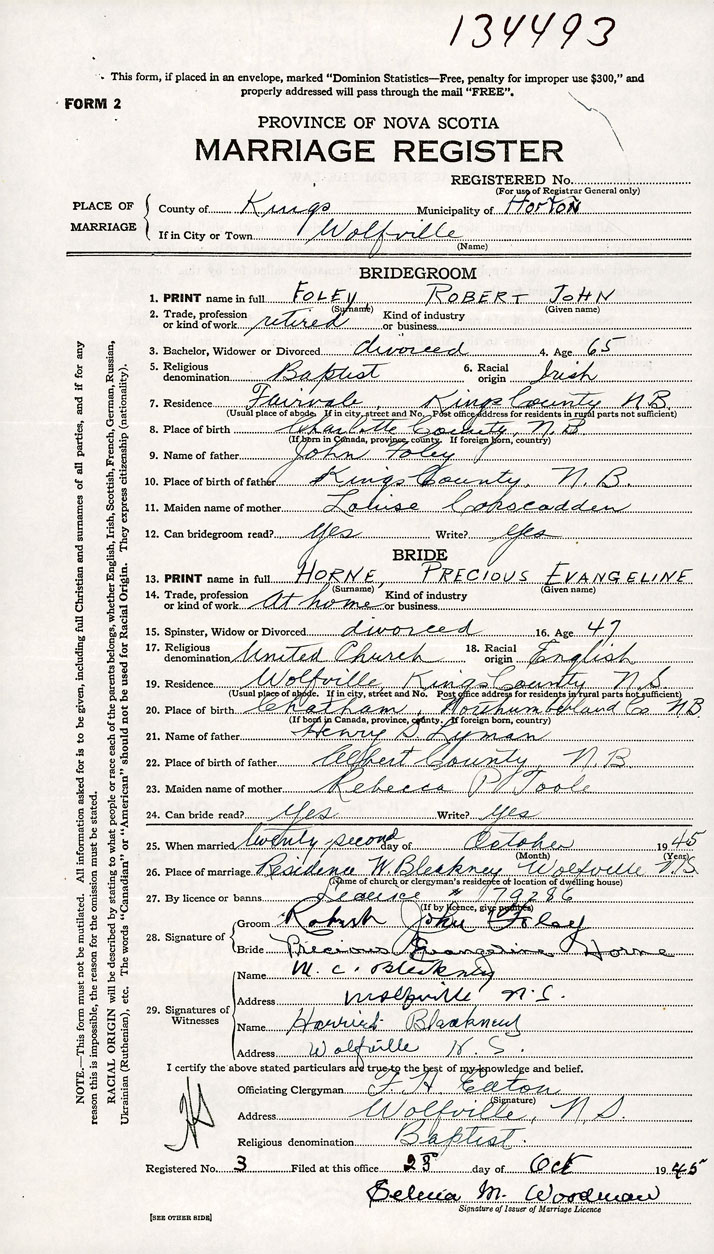 134493
This form, if placed in an envelope, marked "Dominion Statistics—Free, penalty for improper use $300," and
properly addressed will pass through the mail "FREE".
FORM 2
PROVINCE OF NOVA SCOTIA
MARRIAGE REGISTER
REGISTERED No.
(For use of Registrar General only)
PLACE OF MARRIAGE
County of Kings Municipality of Horton
If in City or Town Wolfville
(Name)
BRIDEGROOM
1. PRINT name in full FOLEY ROBERT JOHN
(Surname) (Given name)
2. Trade, profession or kind of work retired Kind of industry or business
3. Bachelor, Widower or Divorced divorced 4. Age 65
5. Religious denomination Baptist 6. Racial origin Irish
7. Residence Fairvale, Kings County N.B.
(Usual place of abode. If in city, street and No. Post office address for residents in rural parts not sufficient)
8. Place of birth Charlotte County, N.B.
(If born in Canada, province, county. If foreign born, country)
9. Name of father John Foley
10. Place of birth of father Kings County, N.B.
11. Maiden name of mother Louise
12. Can bridegroom read? Yes Write? Yes
BRIDE
13. PRINT name in full HORNE, PRECIOUS EVANGELINE
(Surname) (Given name)
14. Trade, profession or kind of work At home Kind of industry or business
15. Spinster, Widow or Divorced divorced 16. Age 47
17. Religious denomination United Church 18. Racial origin English
19. Residence Wolfville, Kings County N.S.
(Usual place of abode. If in city, street and No. Post office address for residents in rural parts not sufficient)
20. Place of birth Chatham, Northumberland Co NB
(If born in Canada, province, county. If foreign born, country)
21. Name of father Henry S. Lyman
22. Place of birth of father Albert County, N.B.
23. Maiden name of mother Rebecca P. Toole
24. Can bride read? Yes Write? Yes
25. When married twenty second day of October 1945
(Month) (Year)
26. Place of marriage Residence W. Bleakney Wolfville N.S.
(Name of church or clergyman's residence or location of dwelling house)
27. By licence or banns Licence # 79286
(If by licence, give number)
28. Signature of
Groom Robert John Foley
Bride Precious Evangeline Horne
29. Signatures of Witnesses
Name M. C. Bleakney
Address Wolfville N.S.
Name Bleakney
Address Wolfville N.S.
I certify the above stated particulars are true to the best of my knowledge and belief.
Officiating Clergyman F. H. Eaton
(Signature)
Address Wolfville, N.S.
Religious denomination Baptist.
Registered No. 3 Filed at this office day of Oct 1945
Selena M. Woodman
Signature of Issuer of Marriage Licence
[SEE OTHER SIDE]
NOTE.—This form must not be mutilated. All information asked for is to be given, including full Christian and surnames of all parties, and if for any
reason this is impossible, the reason for the omission must be stated.
RACIAL ORIGIN will be described by stating to what people or race each of the parents belongs, whether English, Irish, Scottish, French, German, Russian,
Ukrainian (Ruthenian), etc. The words "Canadian" or "American" should not be used for Racial Origin. They express citizenship (nationality).